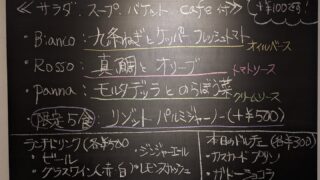 ≪サラダ. スープ. バゲット. cafe 付≫
+¥100です!
・Bianco: 九条ねぎとケッパー. フレッシュトマト オイルベース
・Rosso: 真鯛とオリーブ トマトソース
・panna: モルタデッラとのらぼう菜 クリームソース
・限定5食: リゾットパルミジャーノ(+¥500)
ランチドリンク(各¥500)
・ビール ・ジンジャーエール
・グラスワイン(赤・白) ・レモンスカッシュ
本日のドルチェ(各¥300)
・カスタードプリン
・ガトーショコラ